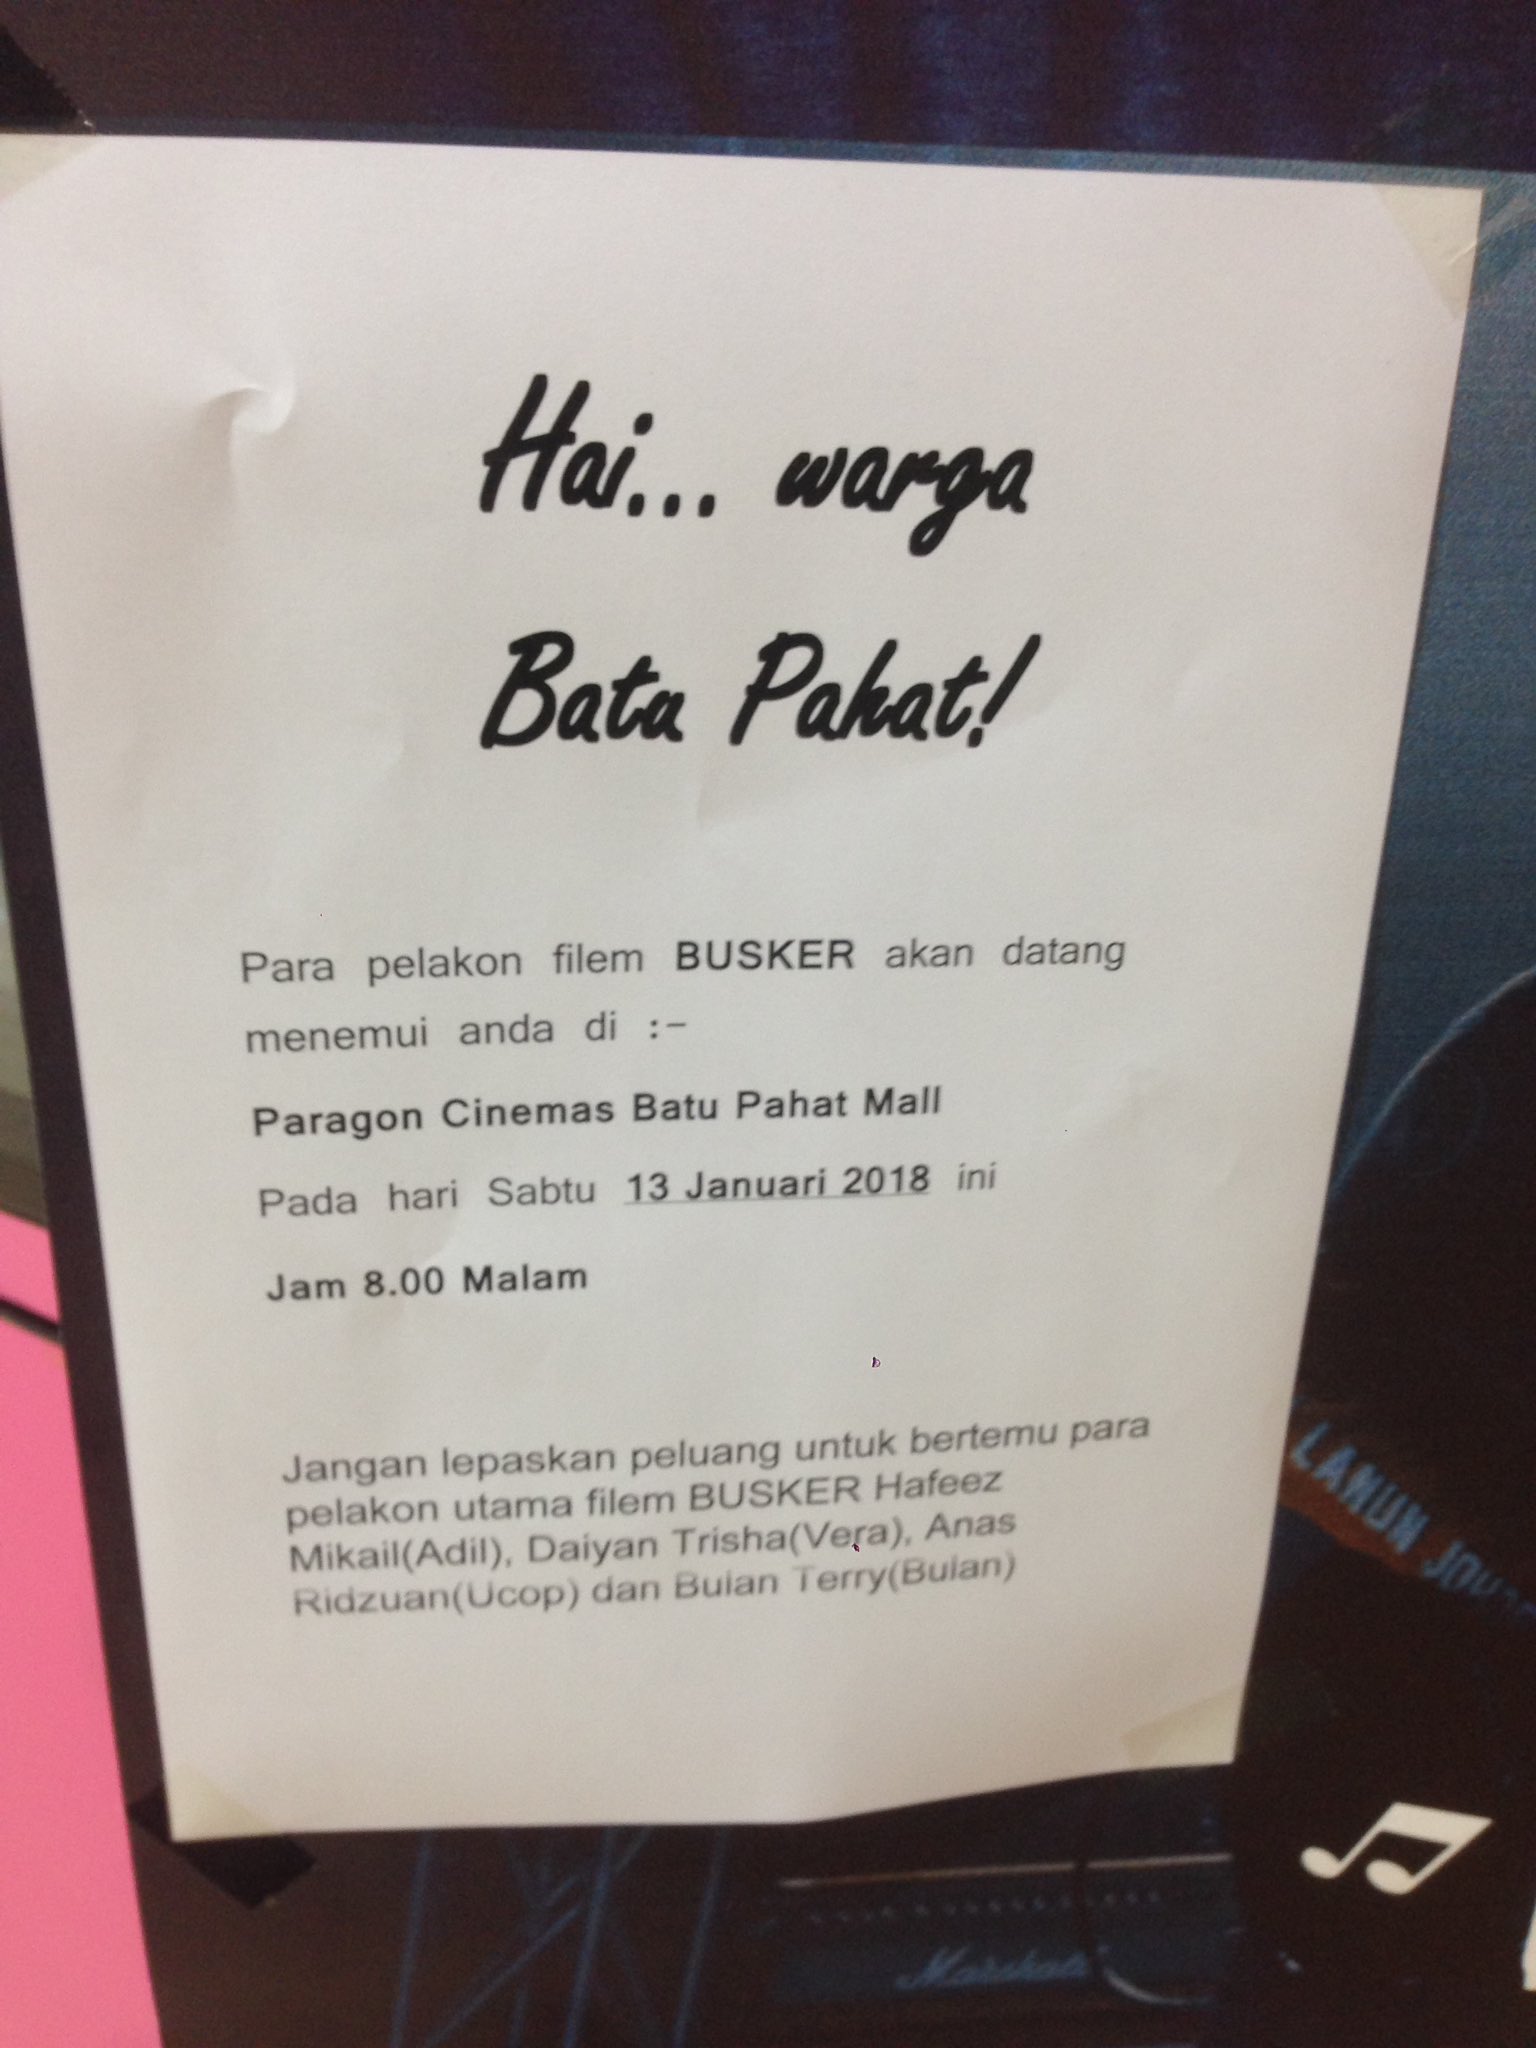 Hai... warga
Batu Pahat!
Para pelakon filem BUSKER akan datang
menemui anda di :-
Paragon Cinemas Batu Pahat Mall
Pada hari Sabtu 13 Januari 2018 ini
Jam 8.00 Malam
Jangan lepaskan peluang untuk bertemu para
pelakon utama filem BUSKER Hafeez
Mikail(Adil), Daiyan Trisha(Vera), Anas
Ridzuan(Ucop) dan Bulan Terry(Bulan)
LANUN
Marshall